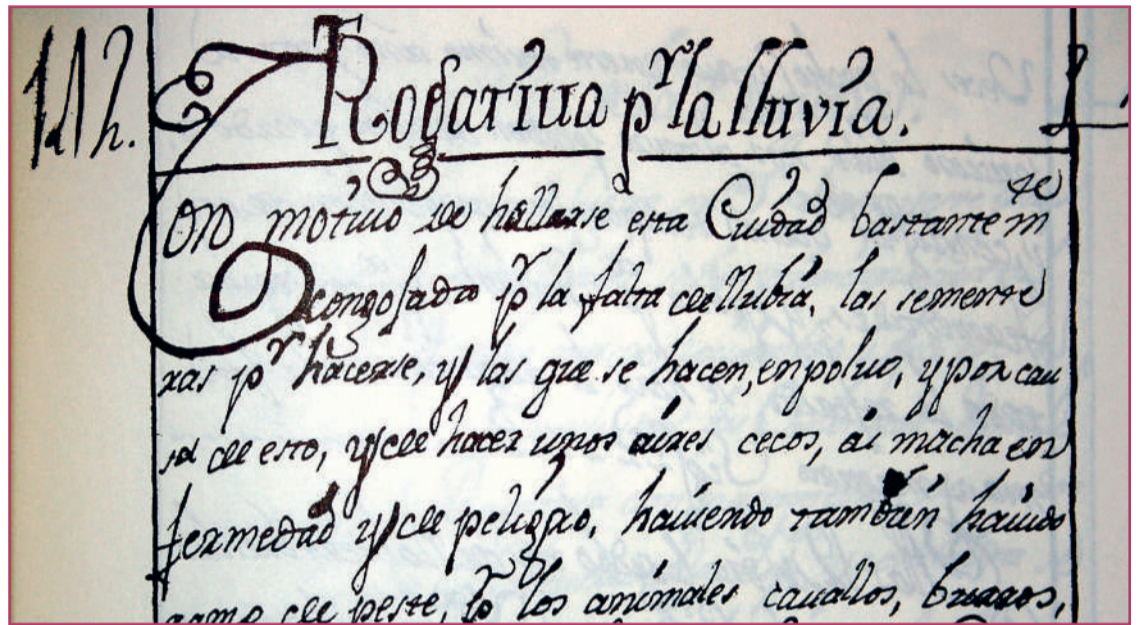 112.
Rogatiua pr la lluvia.
COn motiuo de hallarse esta Ciudad bastantemte
congojada pr la falta de llubia, las semente
ras pr hacerse, y las que se hacen, en poluo, y por cau
sa de esto, y de hacer unos aires cecos, ai mucha en
fermedad y de peligro, hauiendo tambien hauido
ramo de peste, en los animales cauallos, burros,